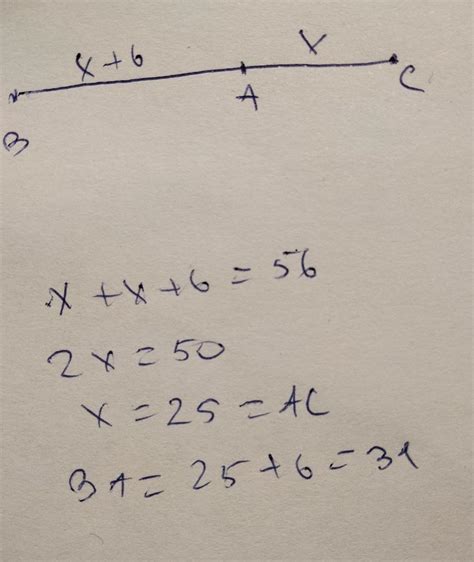 x+6 x
B A C
x+x+6=56
2x=50
x=25=AC
BA=25+6=31